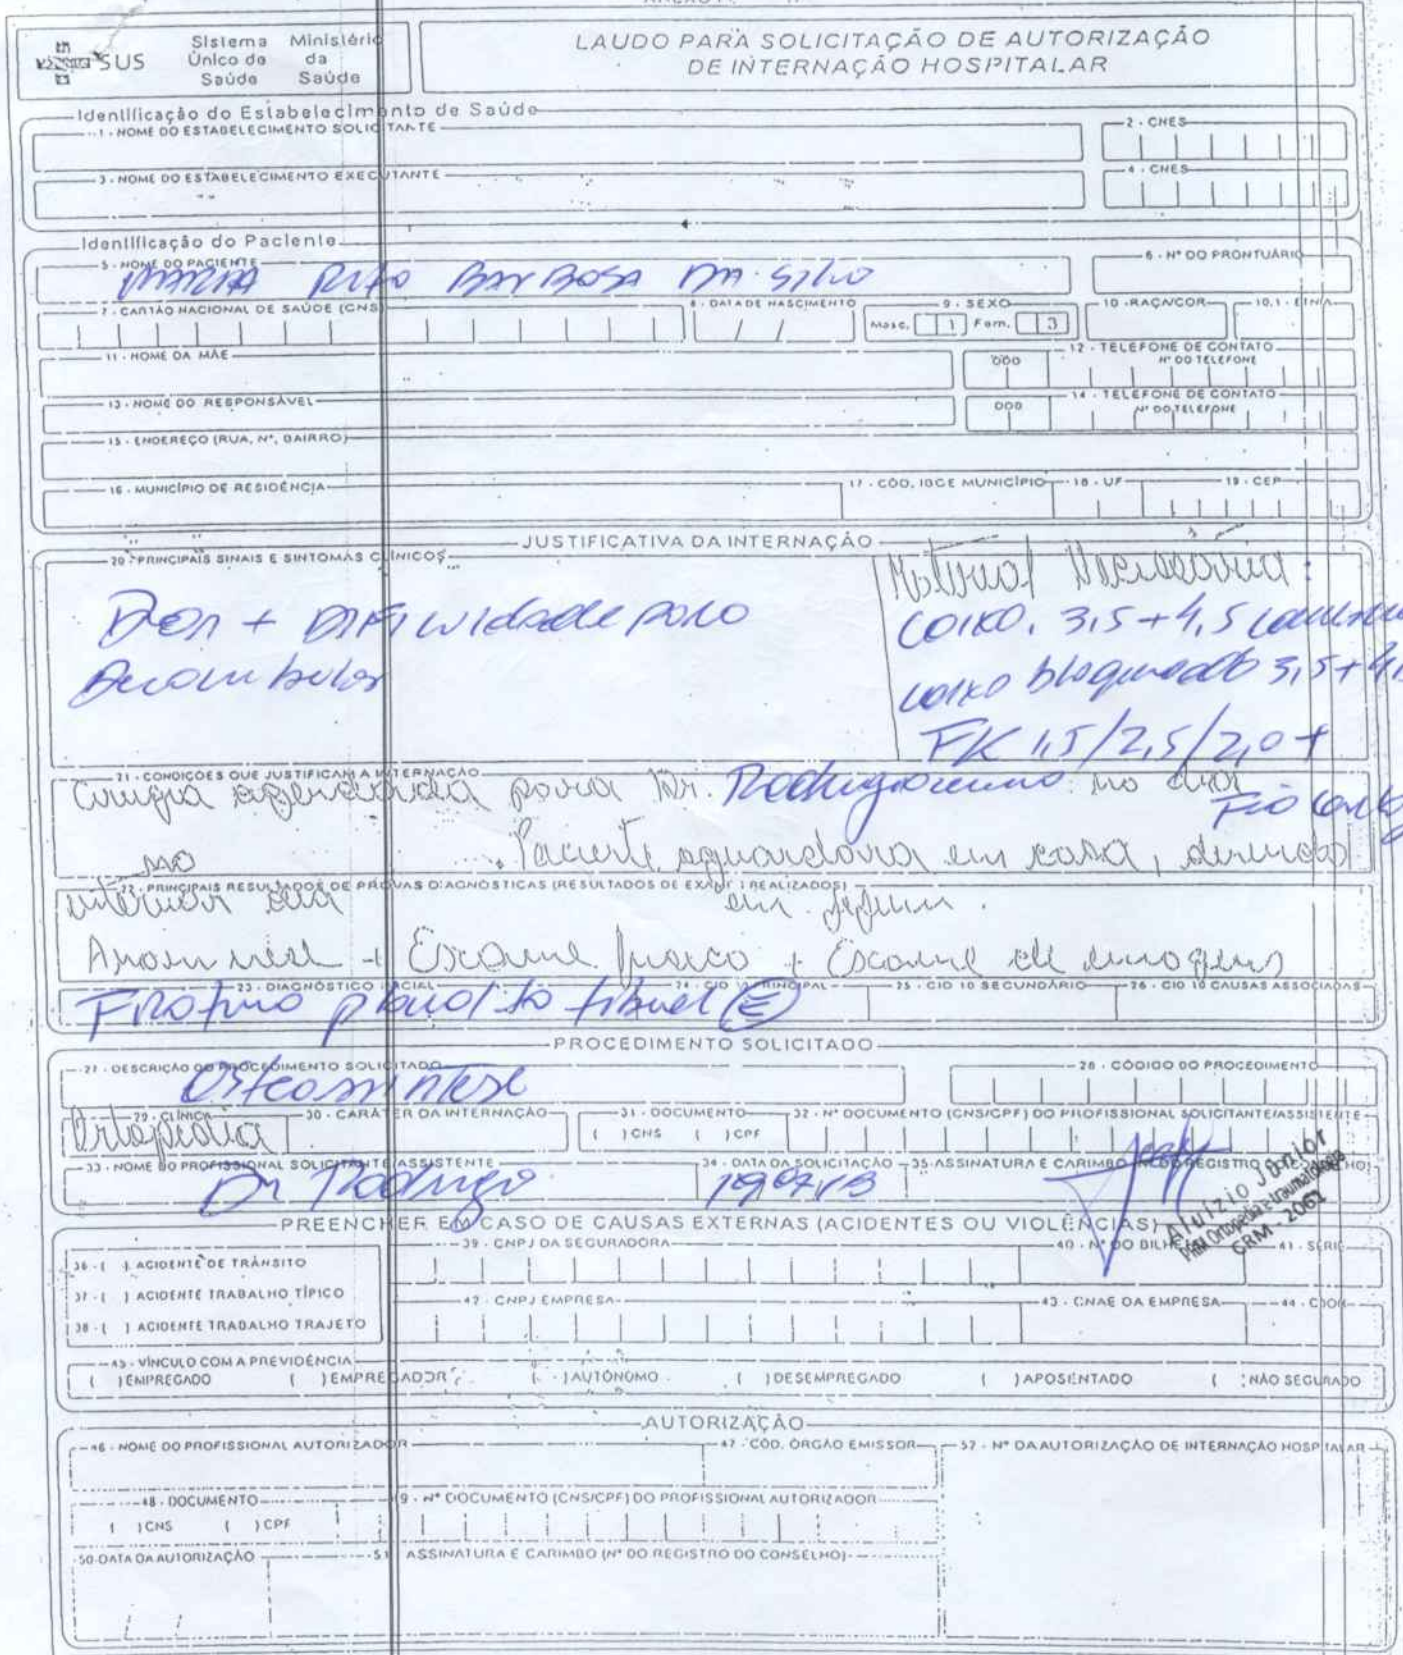 SUS
Sistema Único de Saúde
Ministério da Saúde
LAUDO PARA SOLICITAÇÃO DE AUTORIZAÇÃO
DE INTERNAÇÃO HOSPITALAR
Identificação do Estabelecimento de Saúde
1 - NOME DO ESTABELECIMENTO SOLICITANTE
2 - CNES
3 - NOME DO ESTABELECIMENTO EXECUTANTE
4 - CNES
Identificação do Paciente
5 - NOME DO PACIENTE
6 - N° DO PRONTUÁRIO
MARIA Rita BARBOSA DA Silva
7 - CARTÃO NACIONAL DE SAÚDE (CNS)
8 - DATA DE NASCIMENTO
9 - SEXO
10 - RAÇA/COR
10.1 - ETNIA
/ /
Masc. 1 Fem. 3
11 - NOME DA MÃE
12 - TELEFONE DE CONTATO
DDD N° DO TELEFONE
13 - NOME DO RESPONSÁVEL
14 - TELEFONE DE CONTATO
DDD N° DO TELEFONE
15 - ENDEREÇO (RUA, N°, BAIRRO)
16 - MUNICÍPIO DE RESIDÊNCIA
17 - CÓD. IBGE MUNICÍPIO
18 - UF
19 - CEP
JUSTIFICATIVA DA INTERNAÇÃO
20 - PRINCIPAIS SINAIS E SINTOMAS CLÍNICOS
Dor + Dificuldade para
Deambular
Material Necessário:
caixa 3,5 + 4,5
caixa bloqueado 3,5 +
FK 1,5/2,5/2,0 +
Fio
21 - CONDIÇÕES QUE JUSTIFICAM A INTERNAÇÃO
Cirurgia agendada para Dr. no dia
Paciente aguardava em casa, devendo
internar em jejum.
22 - PRINCIPAIS RESULTADOS DE PROVAS DIAGNÓSTICAS (RESULTADOS DE EXAMES REALIZADOS)
Anamnese + Exame físico + Exame de imagens
23 - DIAGNÓSTICO INICIAL
24 - CID 10 PRINCIPAL
25 - CID 10 SECUNDÁRIO
26 - CID 10 CAUSAS ASSOCIADAS
Fratura planalto tibial (E)
PROCEDIMENTO SOLICITADO
27 - DESCRIÇÃO DO PROCEDIMENTO SOLICITADO
28 - CÓDIGO DO PROCEDIMENTO
Osteossíntese
29 - CLÍNICA
30 - CARÁTER DA INTERNAÇÃO
31 - DOCUMENTO
32 - N° DOCUMENTO (CNS/CPF) DO PROFISSIONAL SOLICITANTE/ASSISTENTE
Ortopedia
( ) CNS ( ) CPF
33 - NOME DO PROFISSIONAL SOLICITANTE/ASSISTENTE
34 - DATA DA SOLICITAÇÃO
35 - ASSINATURA E CARIMBO (N° DO REGISTRO DO CONSELHO)
Dr Rodrigo
Aluizio Júnior
Ortopedia e traumatologia
CRM - 2061
PREENCHER EM CASO DE CAUSAS EXTERNAS (ACIDENTES OU VIOLÊNCIAS)
36 - ( ) ACIDENTE DE TRÂNSITO
39 - CNPJ DA SEGURADORA
40 - N° DO BILHETE
41 - SÉRIE
37 - ( ) ACIDENTE TRABALHO TÍPICO
38 - ( ) ACIDENTE TRABALHO TRAJETO
42 - CNPJ EMPRESA
43 - CNAE DA EMPRESA
44 - CBOR
45 - VÍNCULO COM A PREVIDÊNCIA
( ) EMPREGADO ( ) EMPREGADOR ( ) AUTÔNOMO ( ) DESEMPREGADO ( ) APOSENTADO ( ) NÃO SEGURADO
AUTORIZAÇÃO
46 - NOME DO PROFISSIONAL AUTORIZADOR
47 - CÓD. ÓRGÃO EMISSOR
52 - N° DA AUTORIZAÇÃO DE INTERNAÇÃO HOSPITALAR
48 - DOCUMENTO
49 - N° DOCUMENTO (CNS/CPF) DO PROFISSIONAL AUTORIZADOR
( ) CNS ( ) CPF
50 - DATA DA AUTORIZAÇÃO
51 - ASSINATURA E CARIMBO (N° DO REGISTRO DO CONSELHO)
/ /